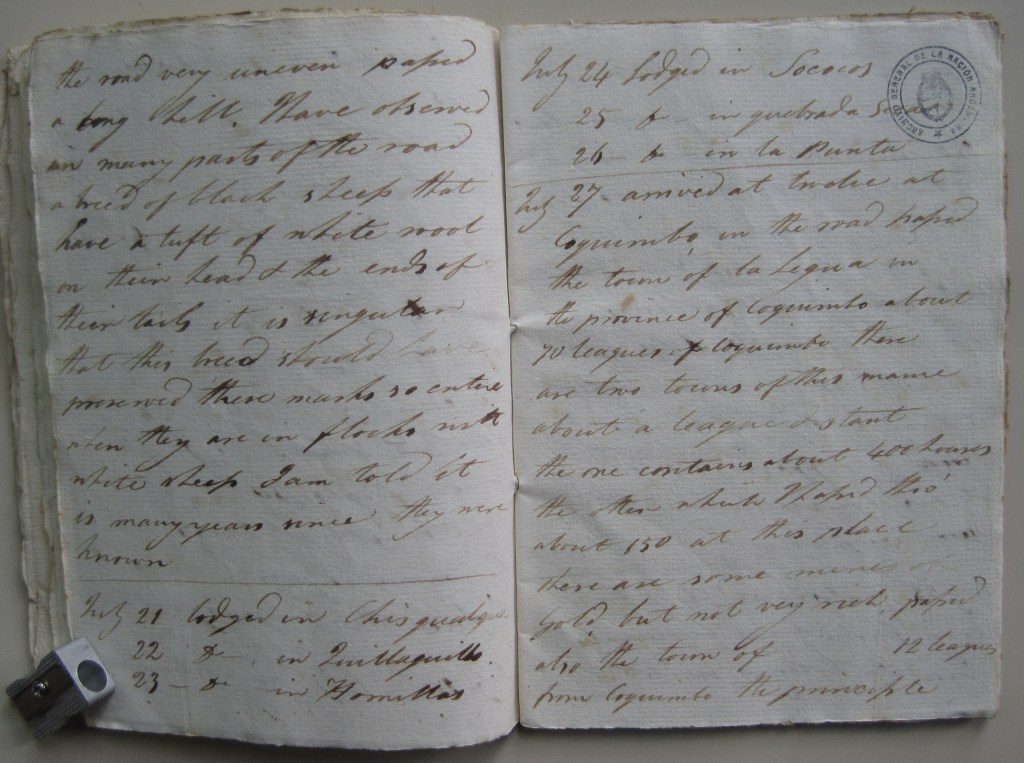 the road very uneven passed
a long hill. I have observed
in many parts of the road
a breed of black sheep that
have a tuft of white wool
on their head & the ends of
their tails it is singular
that this breed should have
preserved these marks so entire
when they are in flocks with
white sheep I am told it
is many years since they were
known
July 21 lodged in
22 do in Quillaquillo
23 - do in Hornillas
July 24 Lodged in Sococos
25 do - in quebrada
26 - do - in la Punta
July 27 - arrived at twelve at
Coquimbo, in the road passed
the town of la Legua in
the province of Coquimbo about
70 leagues Coquimbo there
are two towns of this name
about a league distant
the one contains about 400 houses
the other which I passed thro'
about 150 at this place
there are some mines of
Gold but not very rich, passed
also the town of 12 leagues
from Coquimbo the principle
ARCHIVO GENERAL DE LA NACIÓN ARGENTINA